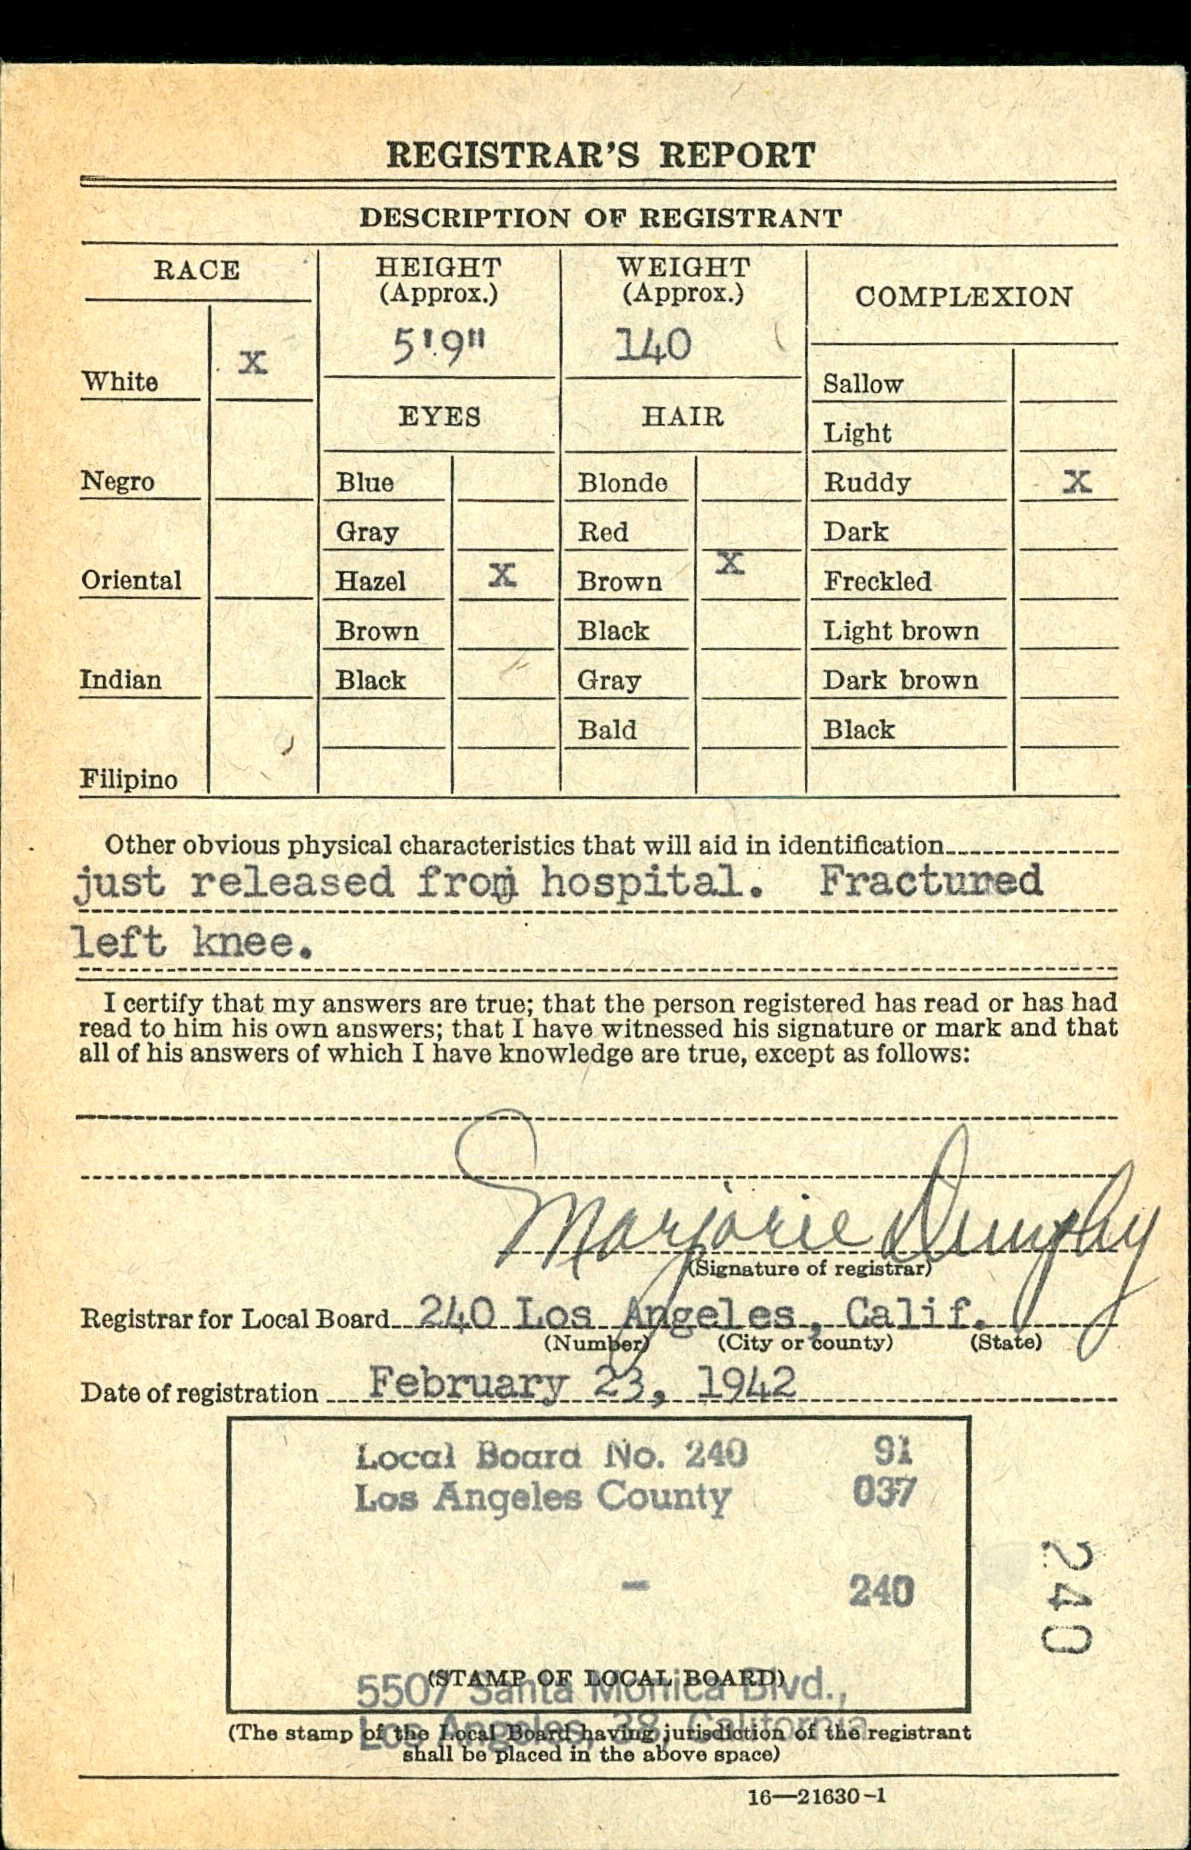 REGISTRAR'S REPORT
DESCRIPTION OF REGISTRANT
RACE
HEIGHT
(Approx.)
WEIGHT
(Approx.)
COMPLEXION
5'9"
140
White X
Sallow
EYES
HAIR
Light
Negro
Blue
Blonde
Ruddy X
Gray
Red
Dark
Oriental
Hazel X
Brown X
Freckled
Brown
Black
Light brown
Indian
Black
Gray
Dark brown
Bald
Black
Filipino
Other obvious physical characteristics that will aid in identification
just released from hospital. Fractured
left knee.
I certify that my answers are true; that the person registered has read or has had
read to him his own answers; that I have witnessed his signature or mark and that
all of his answers of which I have knowledge are true, except as follows:
Marjorie Dunphy
(Signature of registrar)
Registrar for Local Board 240 Los Angeles, Calif.
(Number) (City or county) (State)
Date of registration February 23, 1942
Local Board No. 240 91
Los Angeles County 037
- 240
240
(STAMP OF LOCAL BOARD)
5507 Santa Monica Blvd.,
Los Angeles, 38, California
(The stamp of the Local Board having jurisdiction of the registrant
shall be placed in the above space)
16—21630-1